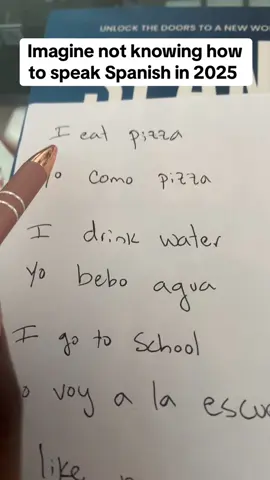 UNLOCK THE DOORS TO A NEW
Imagine not knowing how
to speak Spanish in 2025
I eat pizza
Yo como pizza
I drink water
Yo bebo agua
I go to School
voy a la
like